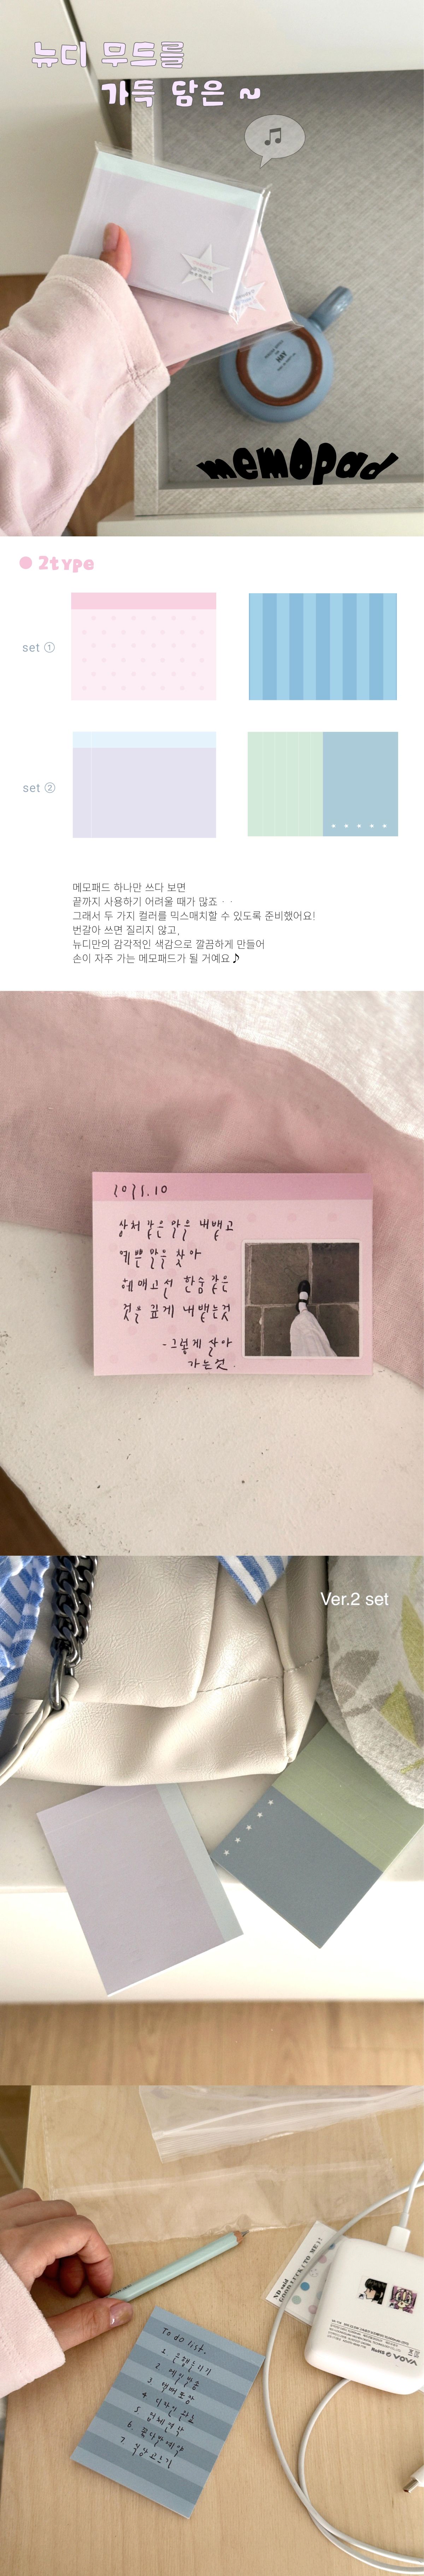 뉴디 무드를
가득 담은 ~
HAY
memopad
2type
set ①
set ②
메모패드 하나만 쓰다 보면
끝까지 사용하기 어려울 때가 많죠 · ·
그래서 두 가지 컬러를 믹스매치할 수 있도록 준비했어요!
번갈아 쓰면 질리지 않고,
뉴디만의 감각적인 색감으로 깔끔하게 만들어
손이 자주 가는 메모패드가 될 거예요♪
2025.10
상처 같은 말을 내뱉고
예쁜 말을 찾아
헤매고선 한숨 같은
것을 깊게 내뱉는것
-그렇게 살아
가는것.
Ver.2 set
ND said
GOOD LUCK (TO ME)!
VOVA
RoHS
To do list.
1. 은행들리기
2.
3. 택배포장
4. 디자인
5. 업체연락
6.
7.